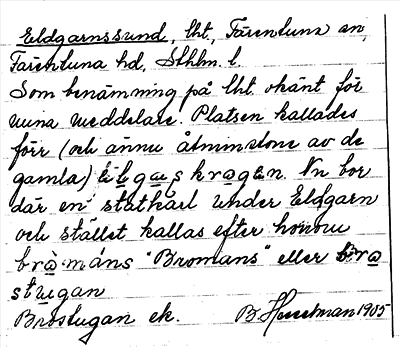 Eldgarnssund, lht, Färentuna sn,
Färentuna hd, Sthlm. l.
Som benämning på lht okänt för
mina meddelare. Platsen kallades
förr (och ännu åtminstone av de
gamla) krogen. Nu bor
där en statkarl under Eldgarn
och stället kallas efter honom
bro͟máns "Bromans" eller bro͟
stu͟gan
Brostugan ek. B. Hesselman 1905